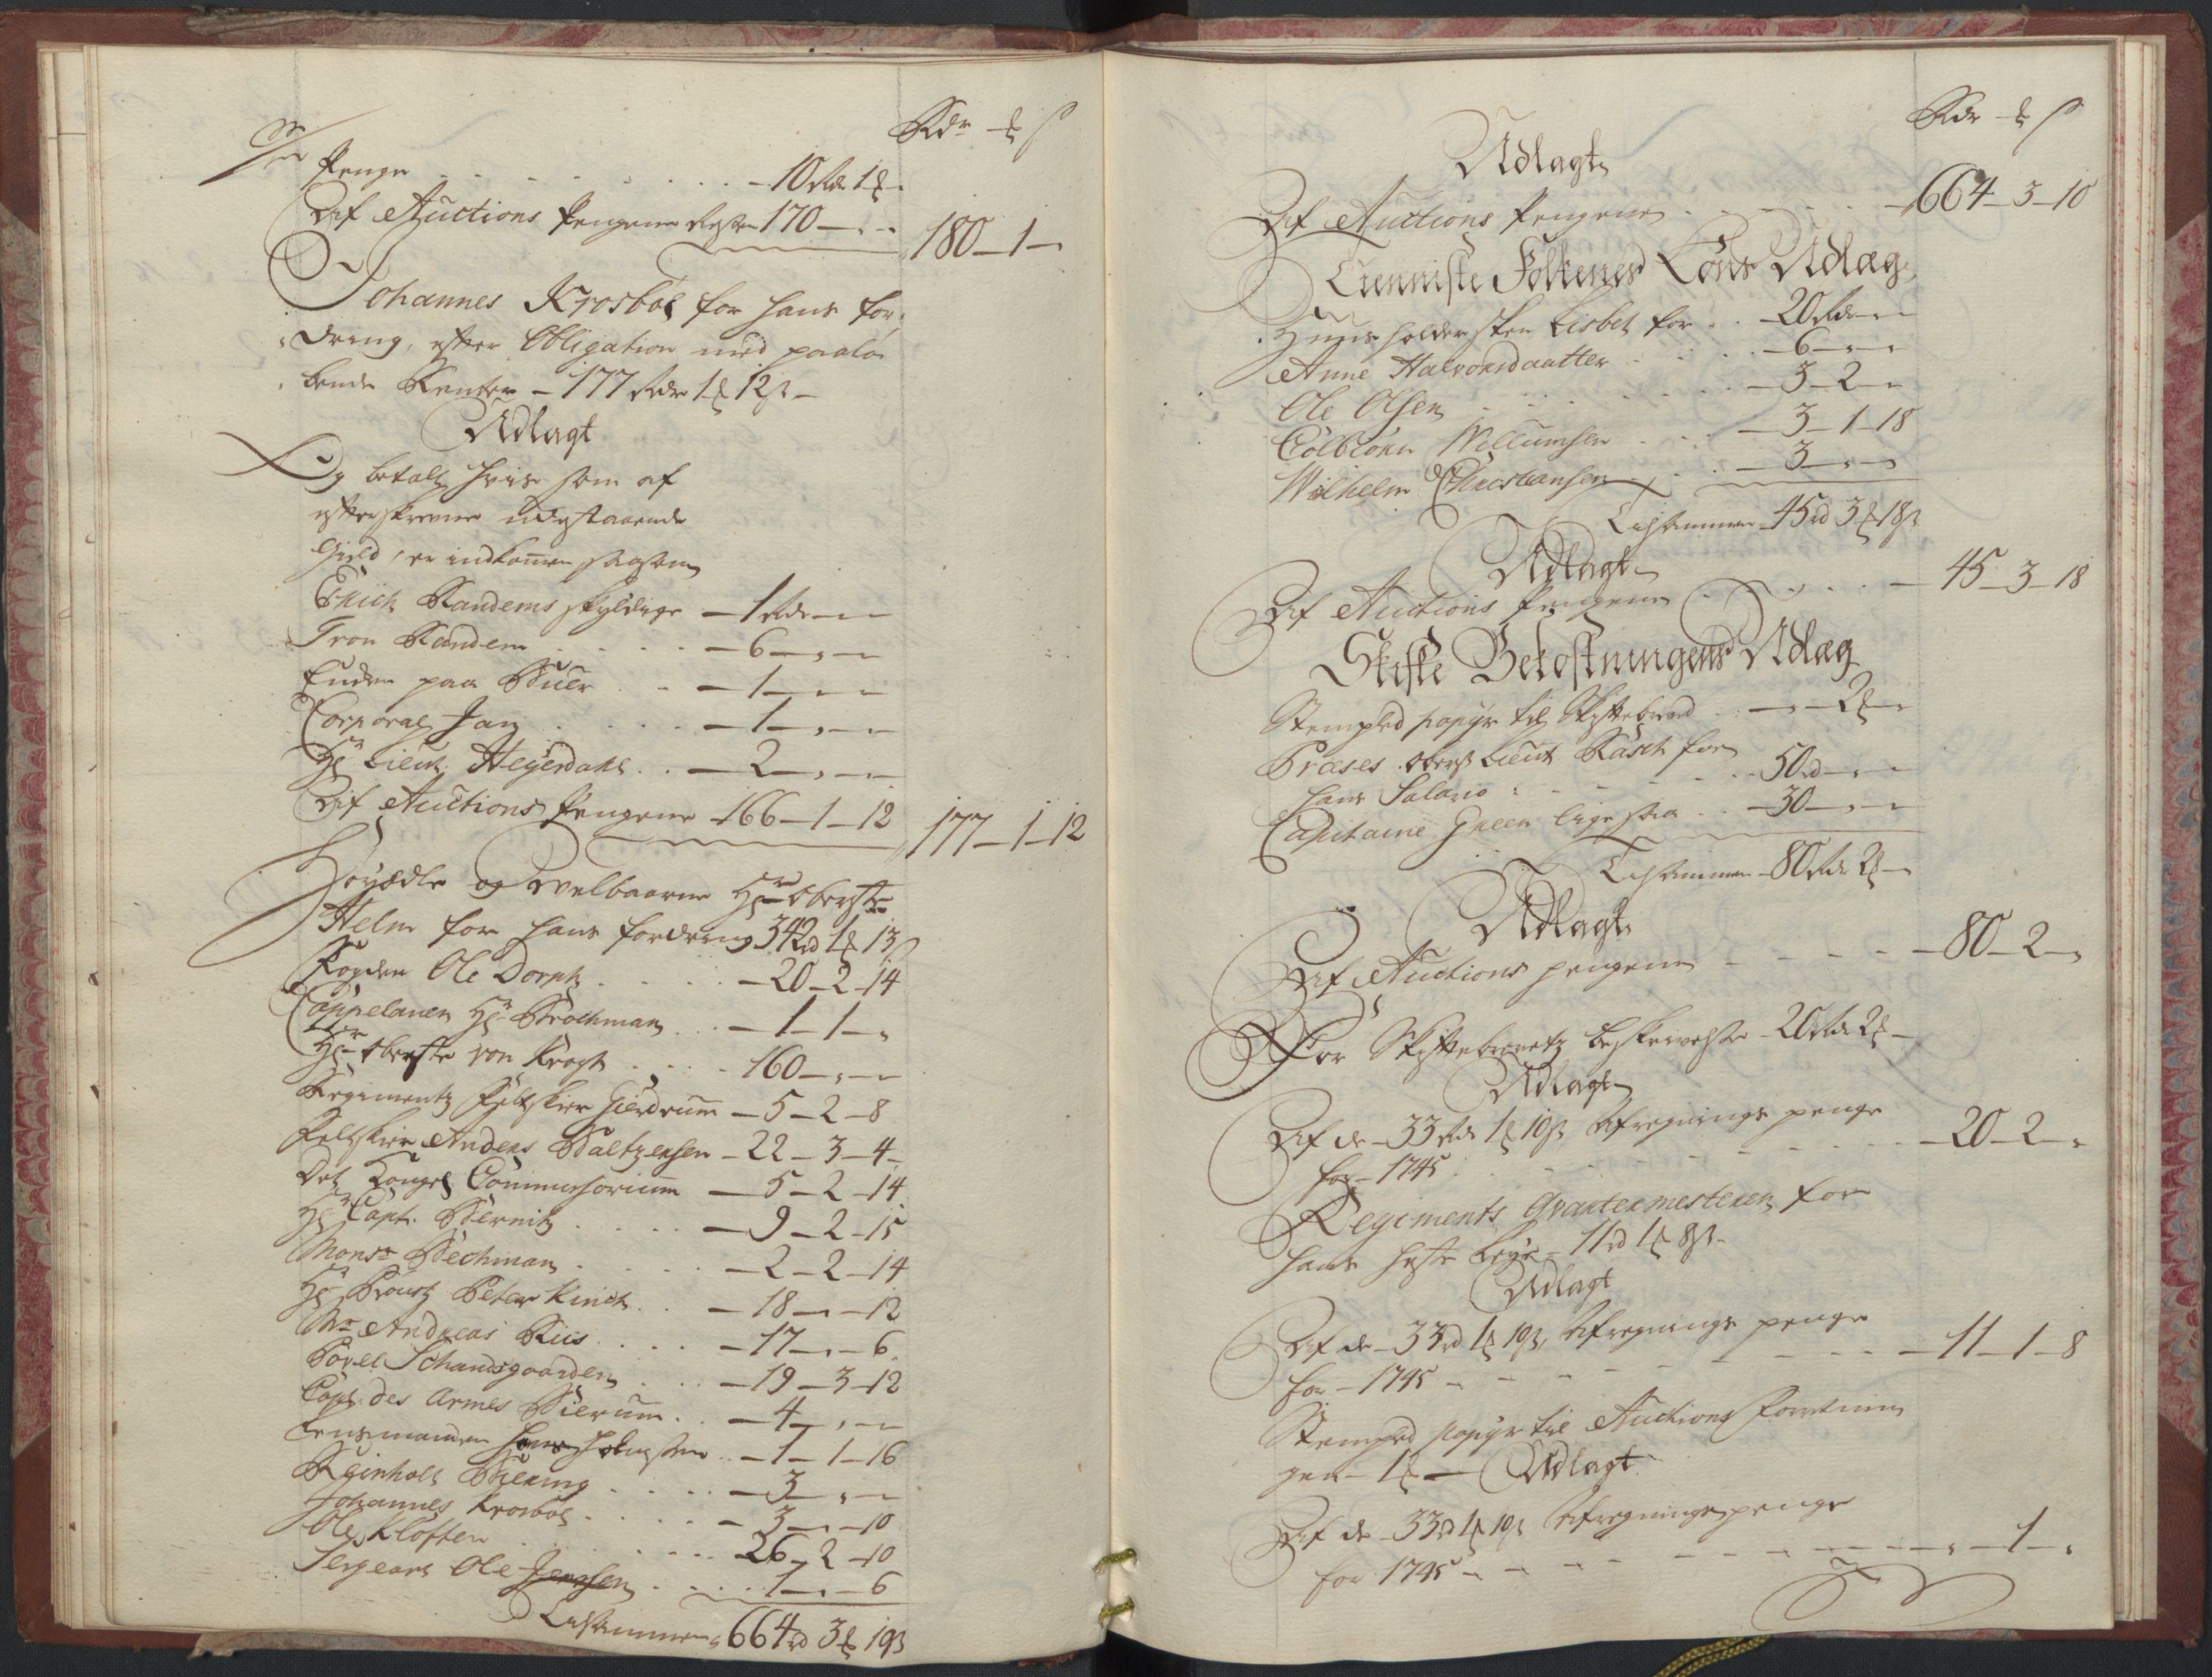 Rdr ℔ ß
Penge - 10 Rdr 1 ℔ -
Af Auctions Pengene Resten 170 - " - 180 - 1 -
Johannes Krosbøl for hans for-
dring, efter Obligation med paalø-
bende Renter - 177 Rdr 1 ℔ 12 ß -
Udlagt
Og betalt hvis som af
efterskrevne udestaaende
Gield, er indkommen saasom
Erich Randems skyldige - 1 Rdr - -
Tron Randem - 6 - " -
Enken paa Buer - 1 - " -
Corporal Jan - 1 - " -
Hr Lieut. Heyerdahl - 2 - " -
Af Auctions Pengene 166 - 1 - 12 177 - 1 - 12
Høyædle og Velbaarne Hr Oberste
Helm for hans fordring 342 rd 1 ℔ 13 ß
Fogden Ole Dorph - 20 - 2 - 14
Cappelanen Hr Brochman - 1 - 1 - "
Hr Oberste von Krogh - 160 - " -
Regimentz Feltskier Gierdrum - 5 - 2 - 8
Feltskier Anders Baltzersen - 22 - 3 - 4
Det Kongel Commissorium - 5 - 2 - 14
Hr Capt. Bernitz - 9 - 2 - 15
Monsr Bechman - 2 - 2 - 14
Hr Provst Peter Kinch - 18 - " - 12
Mr Andreas Riis - 17 - " - 6
Povel Schandsgaarden - 19 - 3 - 12
Capt: des Armes Bierum - 4 - " -
Lensmanden - 1 - 1 - 16
Reinholt - 3 - " -
Johannes Krosbøl - 3 - " - 10
Ole Kløften - 26 - 2 - 10
Sergeant Ole Jensen - 1 - " - 6
Tilsammen 664 rd 3 ℔ 10 ß
Rdr ℔ ß
Udlagt
Af Auctions Pengene - 664 - 3 - 10
Tienniste Folkenes Løns Udlæg
Huusholdersken Lisbet for - 20 Rdr - -
Anne Halvorsdaatter - 6 - " -
Ole Olsen - 3 - 2 -
Colbiørn Willumsen - 3 - 1 - 18
Wilhelm Christiansen - 3 - " -
Tilsammen 45 rd 3 ℔ 18 ß
Udlagt
Af Auctions Pengene - 45 - 3 - 18
Skifte Bekostningens Udlæg
Stempled papiir til Skiftebrevet - " - 2 ℔ -
Præses Oberst Lieut Rasch for
hans Salario - 50 rd - " -
Capitaine Green ligesaa - 30 - " -
Tilsammen 80 Rdr 2 ℔ -
Udlagt
Af Auctions pengene - 80 - 2 - "
For Skiftebrevetz beskrivelse 20 Rdr 2 ℔ -
Udlagt
Af de - 33 Rdr 1 ℔ 10 ß Afregnings penge
for - 1745 - 20 - 2 - "
Regiments Qvartermesteren for
hans heste leye - 11 rd 1 ℔ 8 ß -
Udlagt
Af de - 33 rd 1 ℔ 10 ß Afregnings penge
for - 1745 - 11 - 1 - 8
Stempled papiir til Auctions Forretnin
gen - 1 ℔ - Udlagt
Af de - 33 rd 1 ℔ 10 ß Afregningspenge
for 1745 - " - 1 - "